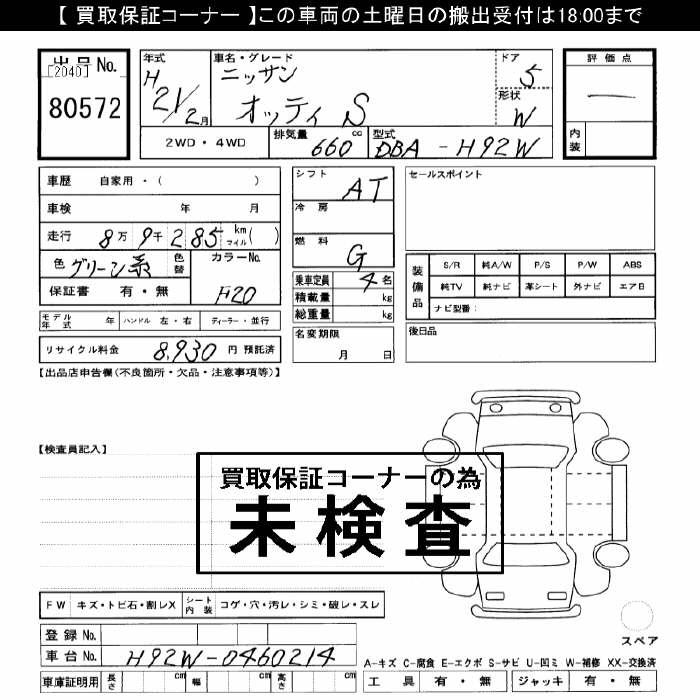 【 買取保証コーナー 】この車両の土曜日の搬出受付は18:00まで
出品No.
[2040]
80572
年式
H
21/2月
車名・グレード
ニッサン
オッティ S
ドア
5
形状
W
評価点
—
内装
2WD・4WD
排気量 660 cc
型式 DBA-H92W
車歴 自家用・( )
車検 年 月
走行 8万 9千 285 km マイル ( )
色 グリーン系 色替 カラーNo. F20
保証書 有・無
モデル年式 年 ハンドル 左・右 ディーラー・並行
リサイクル料金 8,930 円 預託済
シフト AT
冷房
燃料 G
乗車定員 4 名
積載量 kg
総重量 kg
名変期限
月 日
セールスポイント
装備品
S/R 純A/W P/S P/W ABS
純TV 純ナビ 革シート 外ナビ エアB
ナビ型番:
後日品
【出品店申告欄(不良箇所・欠品・注意事項等)】
【検査員記入】
買取保証コーナーの為
未検査
FW キズ・トビ石・割レX シート内装 コゲ・穴・汚レ・シミ・破レ・スレ
登録No.
車台No. H92W-0460214
車庫証明用 長さ cm 幅 cm 高さ cm
スペア
A-キズ C-腐食 E-エクボ S-サビ U-凹ミ W-補修 XX-交換済
工具 有・無 ジャッキ 有・無